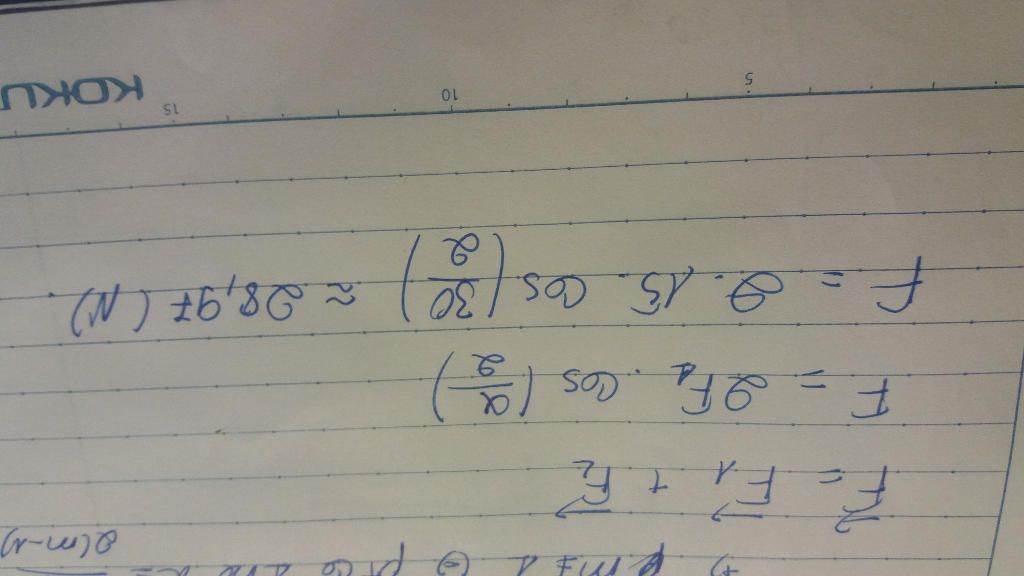 $\vec{F} = \vec{F_1} + \vec{F_2}$
$F = 2F_1 \cdot \cos\left(\frac{\alpha}{2}\right)$
$F = 2 \cdot 15 \cdot \cos\left(\frac{30}{2}\right) \approx 28,97 (N)$
5 10 15
KOKU